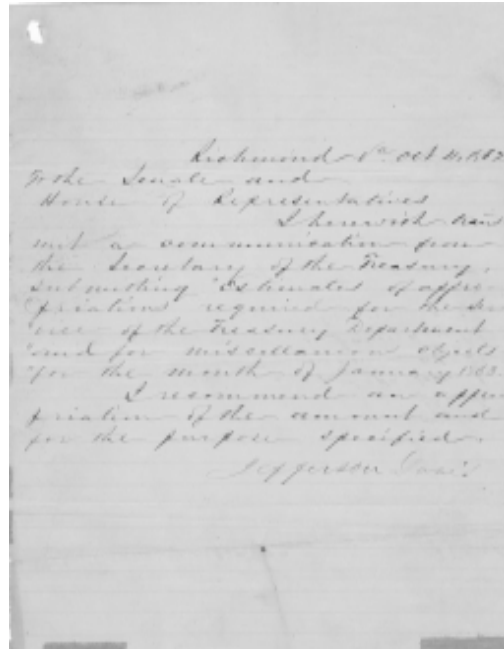 Richmond Va Oct 1862
To the Senate and
House of Representatives
I herewith trans
mit a communication from
the Secretary of the Treasury,
submitting Estimates of appro
priations required for the Ser
vice of the Treasury Department
and for miscellaneous objects
for the month of January 1863.
I recommend an appro
priation of the amount and
for the purpose specified.
Jefferson Davis